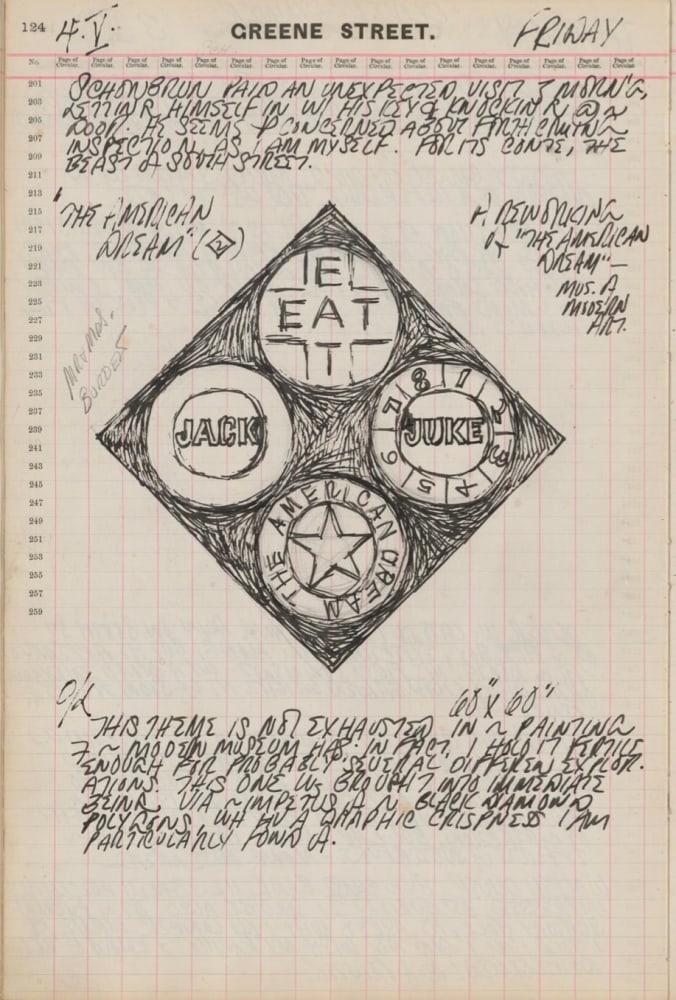 124
4. V.
GREENE STREET.
FRIDAY
No. Page of Circular. Page of Circular. Page of Circular. Page of Circular. Page of Circular. Page of Circular. Page of Circular. Page of Circular. Page of Circular. Page of Circular. Page of Circular. Page of Circular. Page of Circular. Page of Circular. Page of Circular. Page of Circular.
201
203
205
207
209
211
213
215
217
219
221
223
225
227
229
231
233
235
237
239
241
243
245
247
249
251
253
255
257
259
SCHONBRUN PAID AN UNEXPECTED VISIT MORN'G,
HIMSELF IN W/ HIS KEY & @ ~
DOOR. HE SEEMS CONCERNED ABOUT ~
INSPECTION, AS I AM MYSELF. FOR ITS THE
BEAST SOUTH STREET.
"THE AMERICAN
DREAM" (2)
A REWORKING
"THE AMERICAN
DREAM"—
MUS.
MODERN
ART.
MR & MRS.
BURDEN
E
EAT
T
JACK
JUKE
8 1 2 3 4 5 6 7
THE AMERICAN DREAM
O/C
60" X 60"
THIS THEME IS NOT EXHAUSTED IN ~ PAINTING
~ MODERN MUSEUM HAS. IN FACT, I HOLD IT FERTILE
ENOUGH FOR PROBABLY SEVERAL DIFFEREN EXPLOR-
ATIONS. THIS ONE WS BROUGHT INTO IMMEDIATE
BEING VIA ~ IMPETUS ~ BLACK DIAMOND
POLYGONS, WH HV A GRAPHIC CRISPNESS I AM
PARTICULARLY FOND